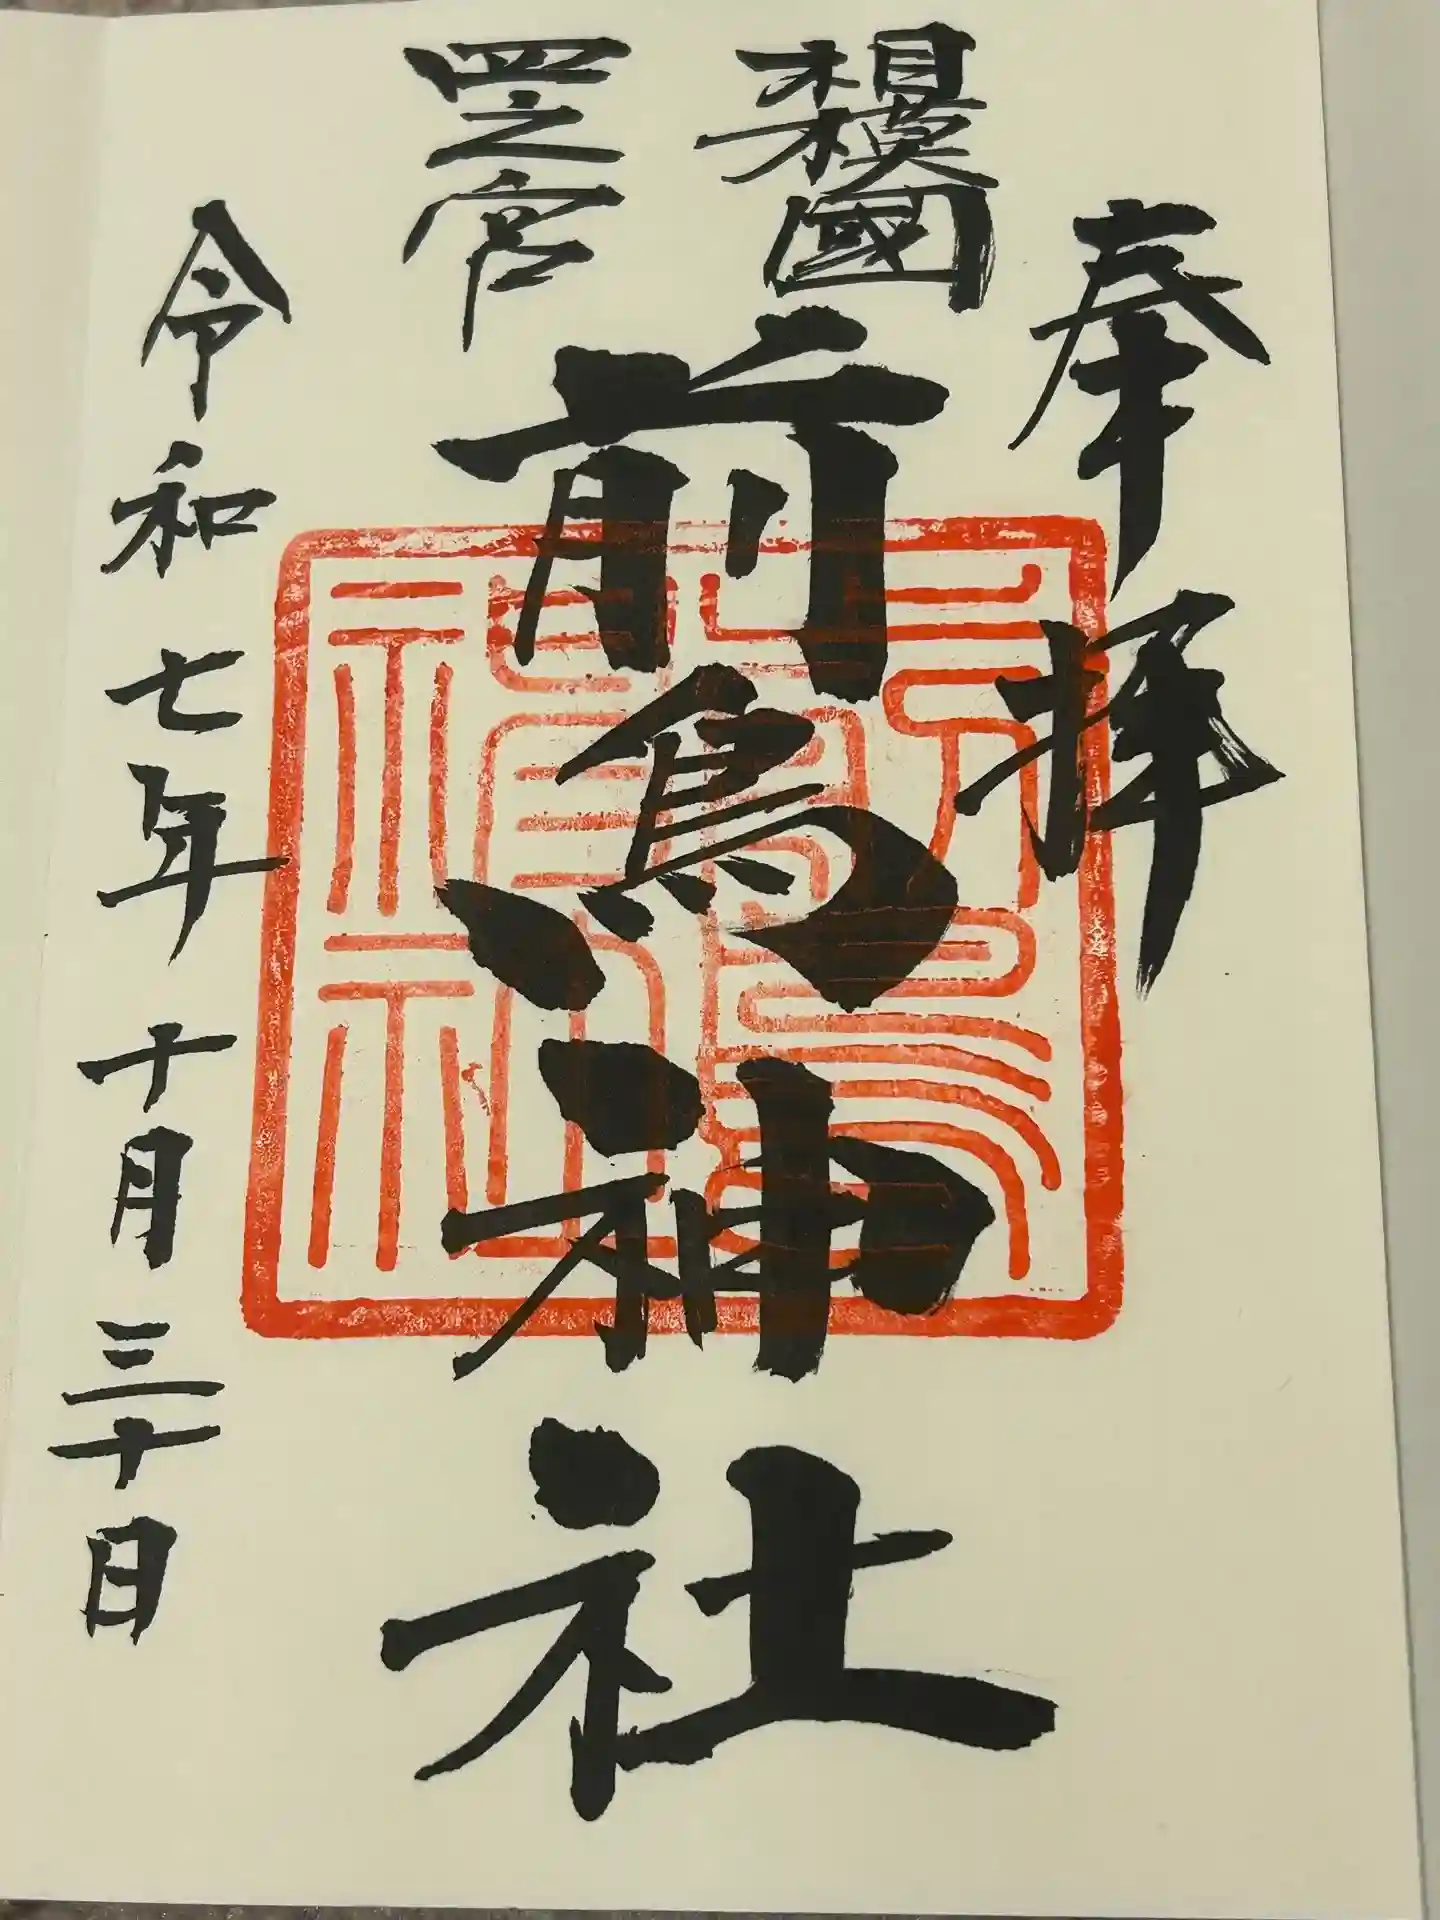 奉拝
相模國
四之宮
前鳥神社
前鳥神社
令和七年十月三十日